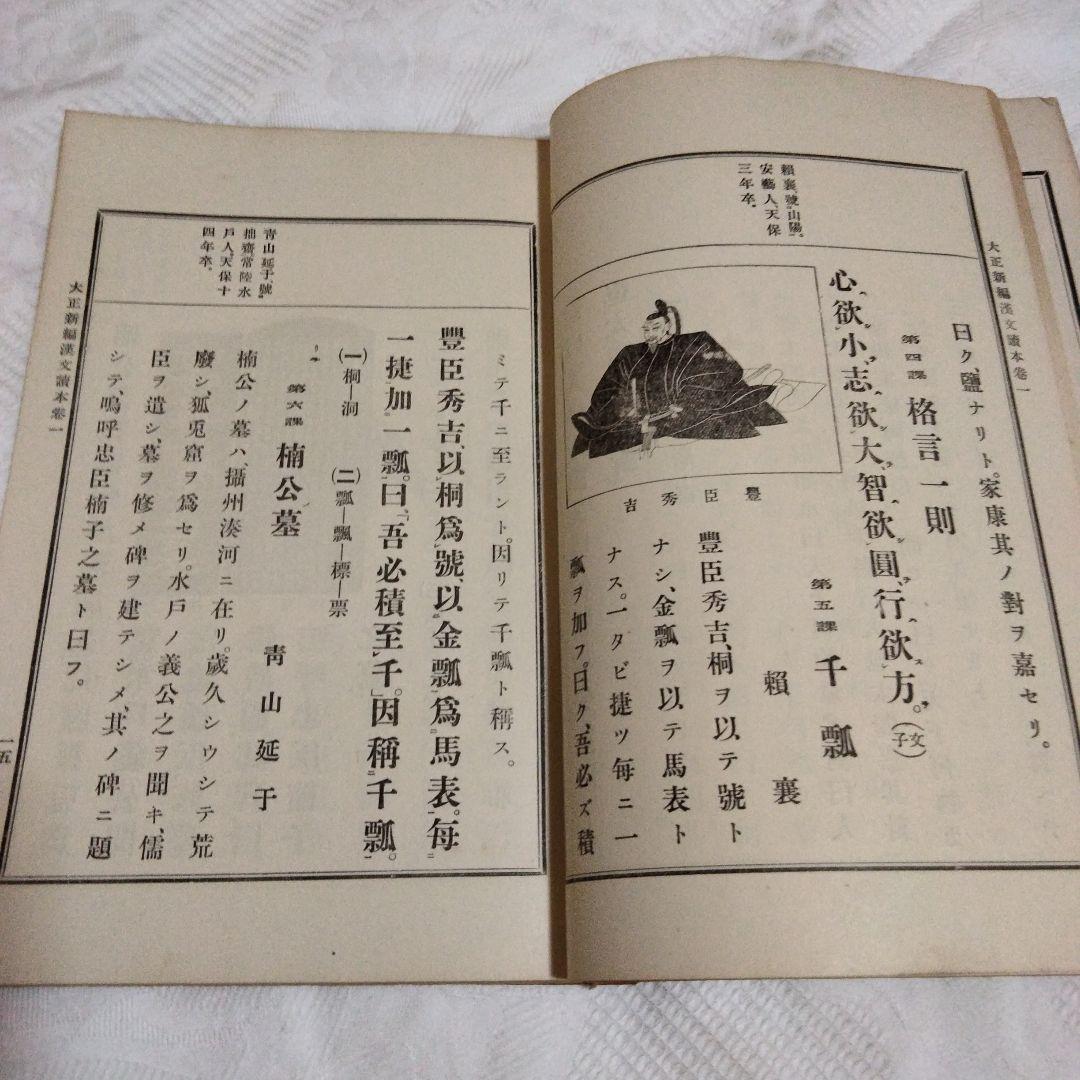 大正新編漢文讀本卷一
賴襄、號山陽。
安藝人、天保
三年卒。
曰ク、鹽ナリト。家康其ノ對ヲ嘉セリ。
第四課 格言一則
心欲小、志欲大、智欲圓、行欲方。(文子)
第五課 千瓢
賴襄
豐臣秀吉
豐臣秀吉、桐ヲ以テ號ト
ナシ、金瓢ヲ以テ馬表ト
ナス。一タビ捷ツ每ニ一
瓢ヲ加フ。曰ク、吾必ズ積
靑山延于、號
拙齋、常陸水
戶人、天保十
四年卒。
ミテ千ニ至ラント。因リテ千瓢ト稱ス。
豐臣秀吉、以桐爲號、以金瓢爲馬表。每
一捷加一瓢。曰、「吾必積至千。」因稱千瓢。
(一)桐—洞 (二)瓢—飄—標—票
第六課 楠公墓
靑山延于
楠公ノ墓ハ、攝州湊河ニ在リ。歲久シウシテ荒
廢シ、狐兎窟ヲ爲セリ。水戶ノ義公之ヲ聞キ、儒
臣ヲ遣シ、墓ヲ修メ碑ヲ建テシメ、其ノ碑ニ題
シテ、嗚呼忠臣楠子之墓ト曰フ。
大正新編漢文讀本卷一
一五